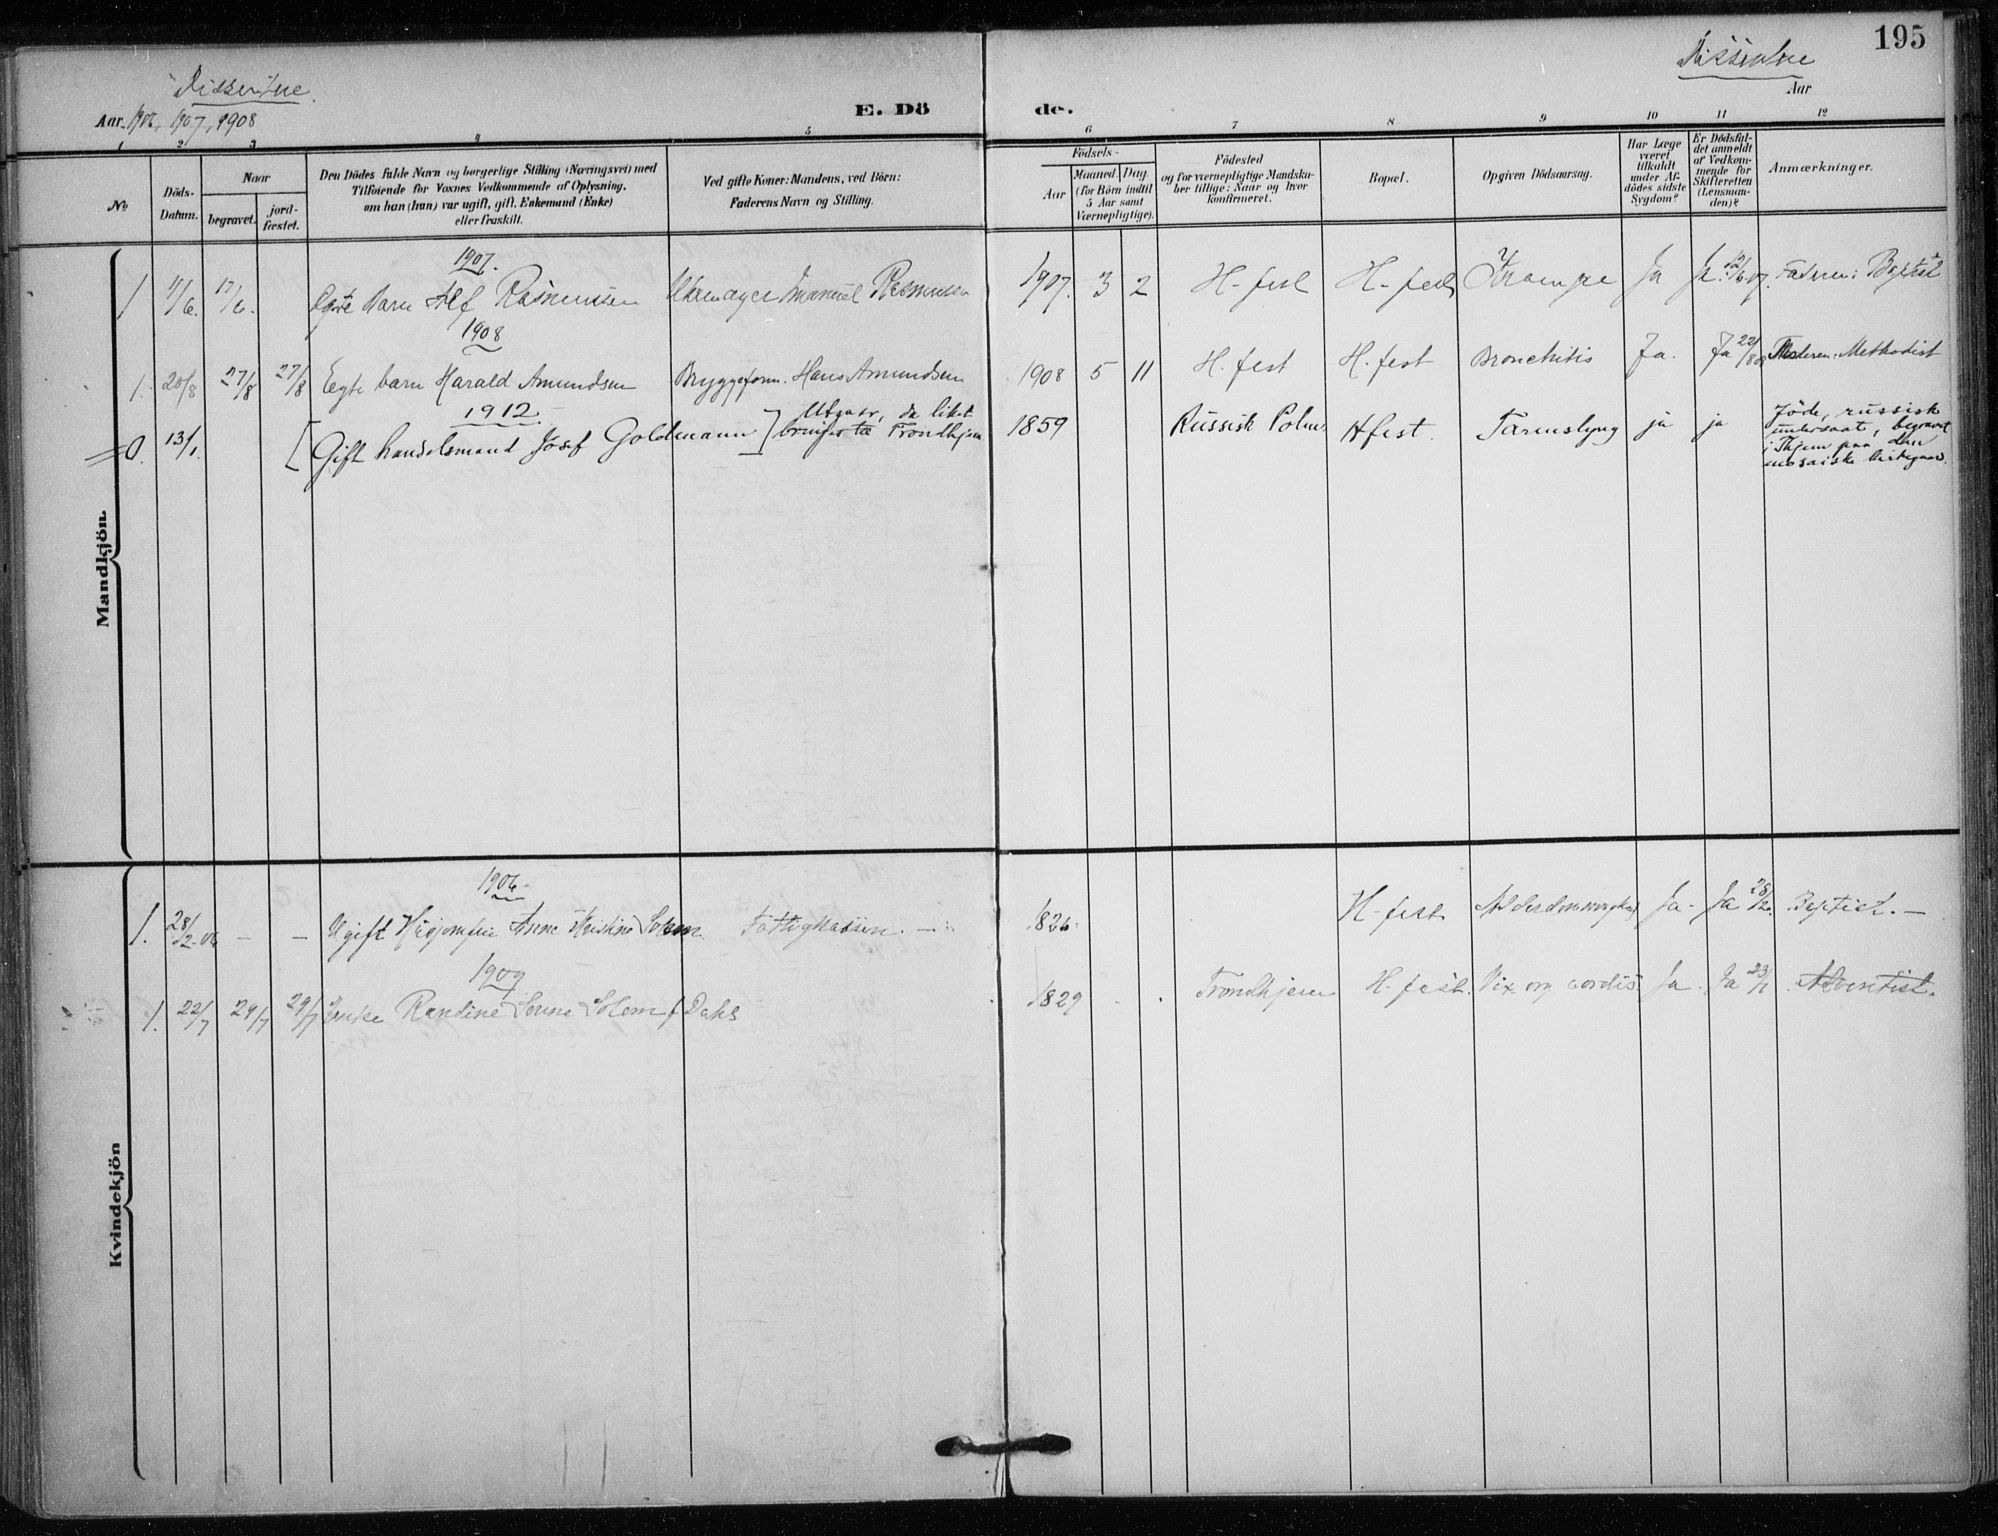 195
Dissentere
Dissentere
Aar 1906, 1907, 1908
E. Dö
de.
Aar
1 2 3 4 5 6 7 8 9 10 11 12
№
Döds-Datum.
Naar
begravet.
jord-fæstet.
Den Dödes fulde Navn og borgerlige Stilling (Næringsvei) med
Tilföiende for Voxnes Vedkommende af Oplysning,
om han (hun) var ugift, gift, Enkemand (Enke)
eller fraskilt.
Ved gifte Koner: Mandens, ved Börn:
Faderens Navn og Stilling.
Födsels-
Aar
Maaned. Dag.
(for Börn indtil
5 Aar samt
Værnepligtige).
Födested
og for værnepligtige Mandska-
ber tillige: Naar og hvor
konfirmeret.
Bopæl.
Opgiven Dödsaarsag.
Har Læge
været
tilkaldt
under Af-
dödes sidste
Sygdom?
Er Dödsfal-
det anmeldt
af Vedkom-
mende for
Skifteretten
(Lensman-
den)?
Anmærkninger.
Mandkjön.
1907.
1 11/6. 17/6. Egte barn Alf Rasmussen Emanuel Rasmussen 1907. 3 2 H-fest H-fest Krampe Ja Ja 12/6 07. Faderen: Baptist
1908
1. 20/8 27/8 27/8 Egte barn Harald Amundsen Bryggeform. Hans Amundsen 1908 5 11 H. fest H. fest Bronchitis Ja. Ja 22/8 08 Moderen: Methodist
1912
0. 13/1. [Gift handelsmand Josef Goldmann] Utgaar, da liket
bringes til Trondhjem 1859 Russisk Polen Hfest. Tarmslyng ja ja Jöde, russisk
undersaat, begravet
i Thjem paa den
mosaiske kirkegaard.
Kvindekjön
1906
1. 28/12-06 – – Ugift Anne Kristine Solem. Fattigkassen. – 1826 H-fest Alderdomssvaghed Ja- Ja 28/12. Baptist. –
1909
1. 22/7 29/7 29/7 Enke Randine Solem f. Dahl 1829 Trondhjem H-fest. Vit. org. cordis Ja. Ja 23/7 Adventist.